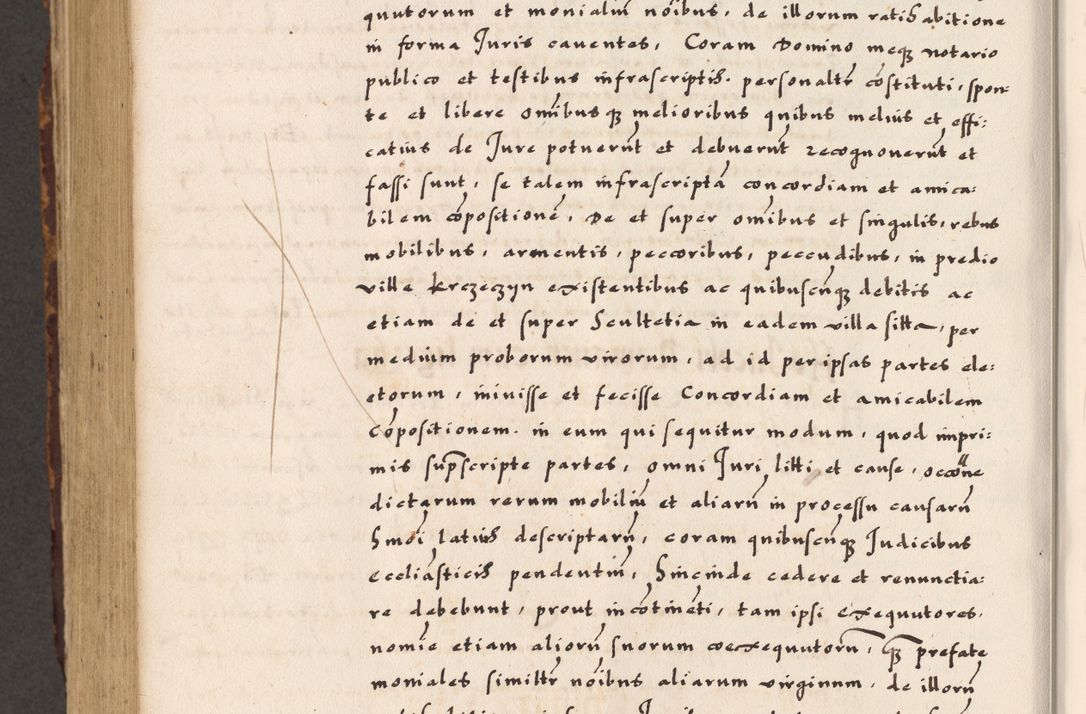 quutorum et monialiū nōibus, de illorum ratihabitione
in forma Juris caventes, Coram Domino meqꝫ notario
publico et testibus infrascriptis. personaltr̄ cōstituti, spon⸗
te et libere omībusqꝫ melioribus quibus melius et effi⸗
catius de Jure potuerūt et debuerūt recognoverūt et
fassi sunt, se talem infrascriptā concordiam et amica⸗
bilem cōpositionē, De et super omībus et singulis, rebus
mobilibus, armentis, peccoribus, peccudibus, in predio
ville krczeczyn existentibus ac quibuscūqꝫ debitis ac
etiam de et super Scultetia in eadem villa sitta, per
medium proborum virorum, ad id per ipsas partes ele⸗
ctorum, iniuisse et fecisse Concordiam et amicabilem
Cōpositionem. in eum qui sequitur modum, quod inpri⸗
mis sup̄scripte partes, omni Juri, litti et cause, occōne
dictarum rerum mobiliū et aliarū in processu causarū
Smōi latius descriptarū, coram quibuscūqꝫ Judicibus
Eccliasticis pendentiū, Sincinde cedere et renunctia⸗
re debebunt, prout in cōtinēti, tam ipsi exequutores.
nomīe etiam aliorū suorum coexequutorū, qꝫ prefate
moniales similtr̄ nōibus aliarum virginum, de illorū